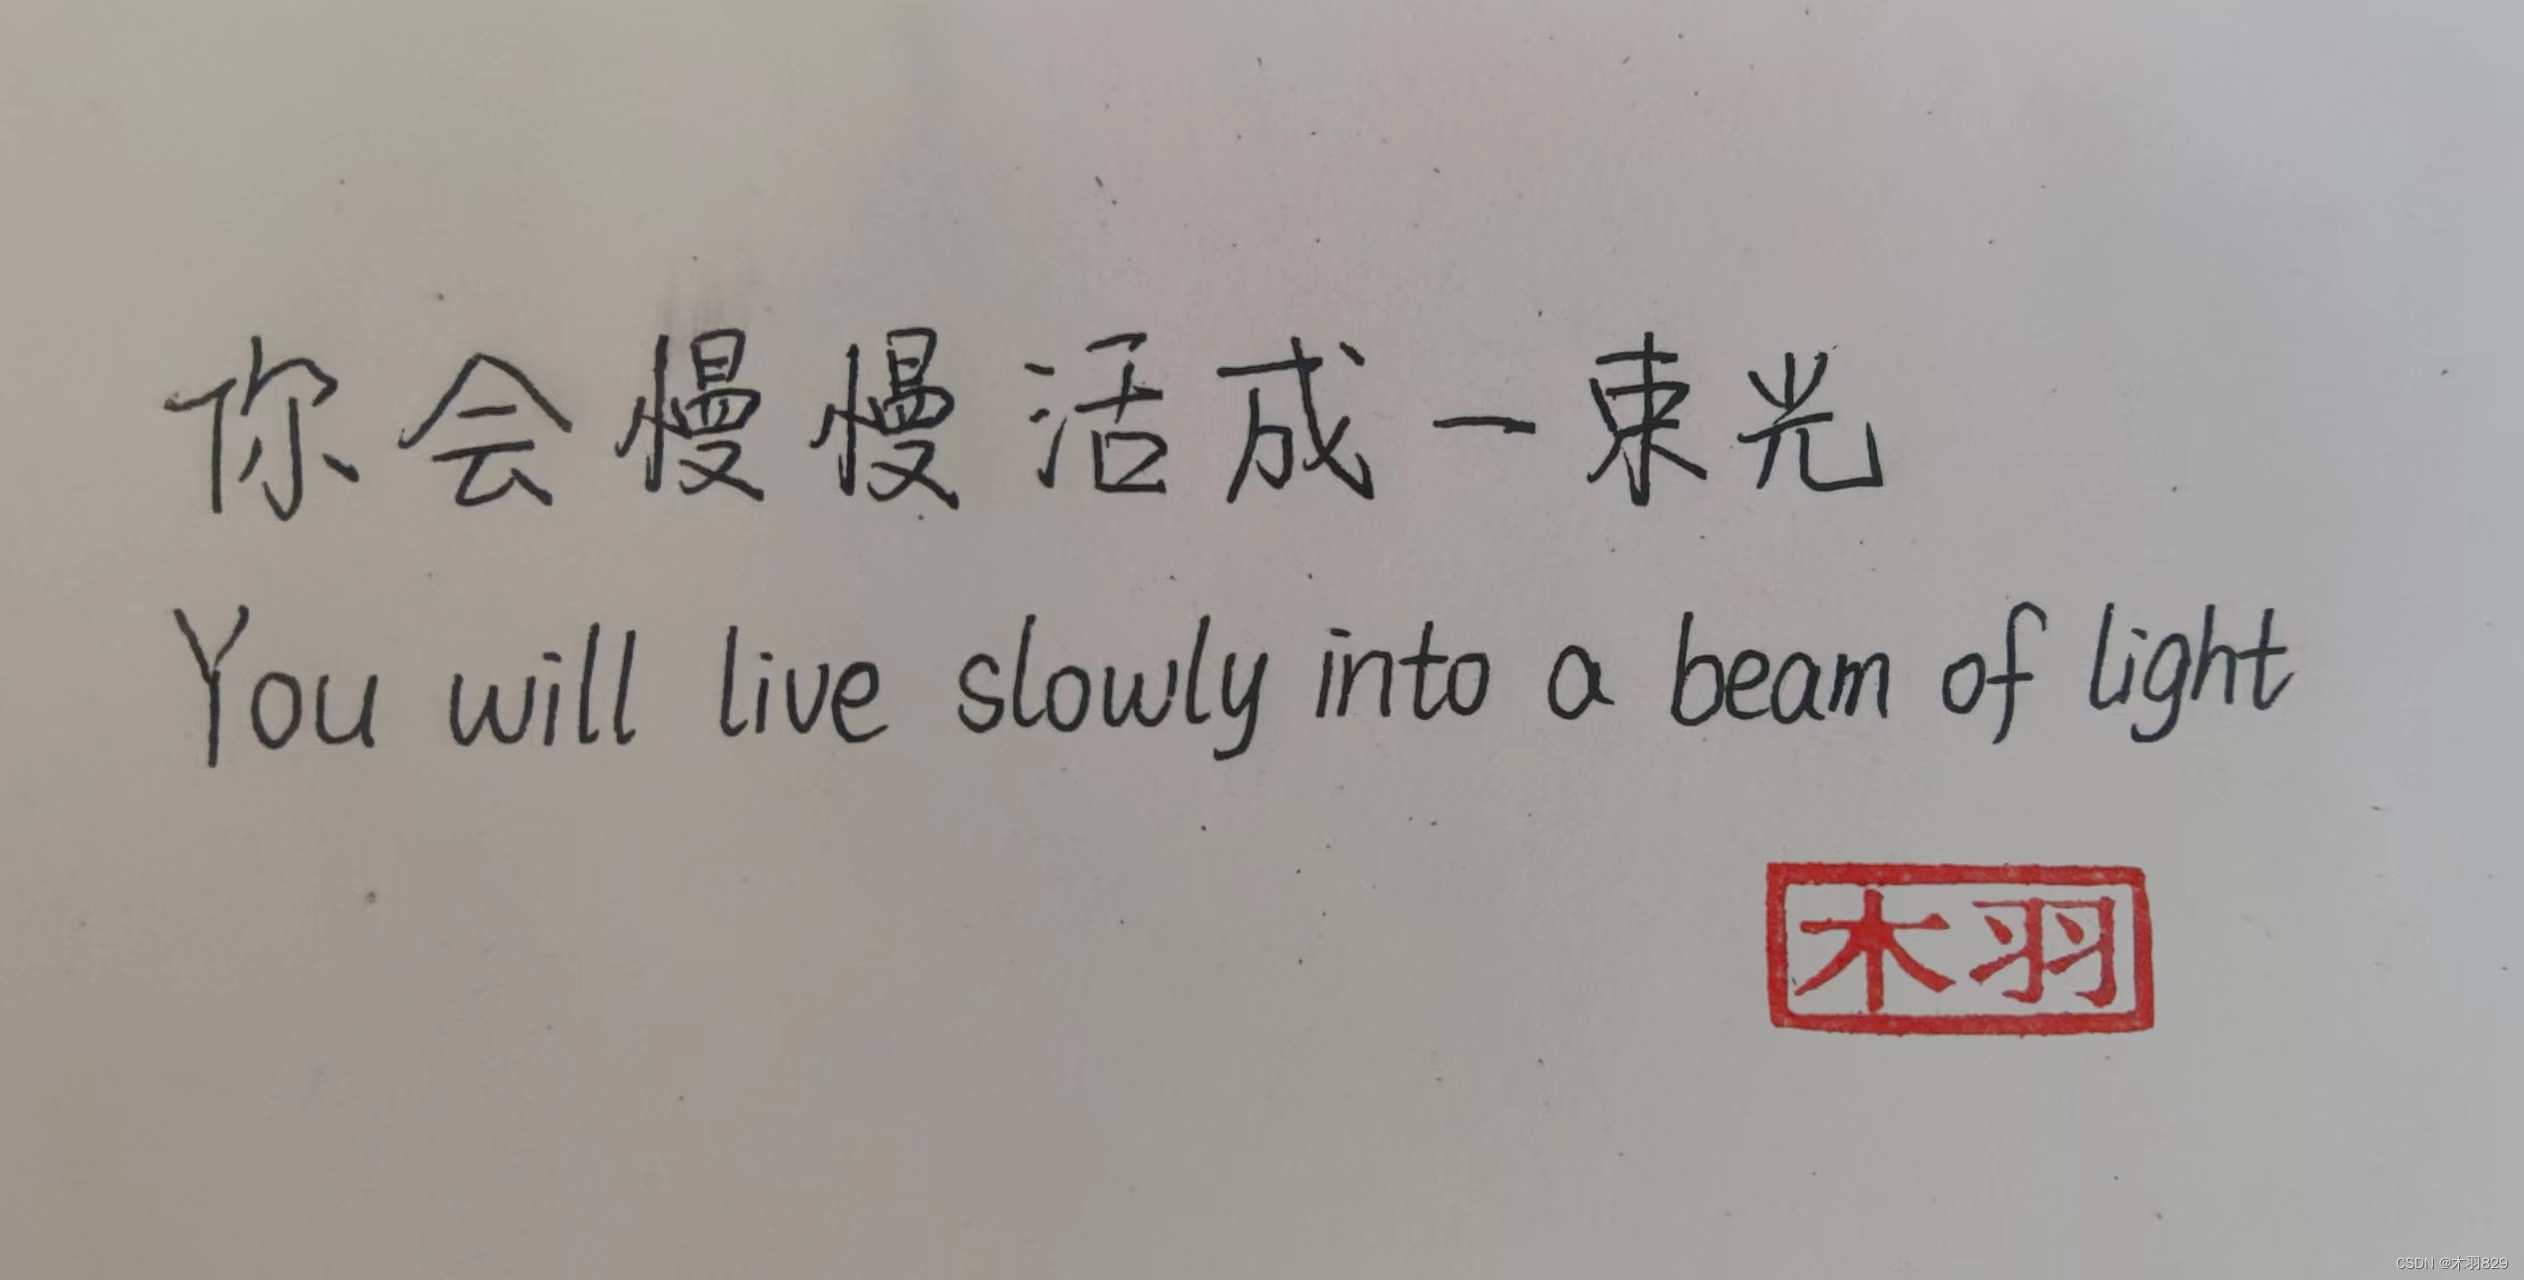 你会慢慢活成一束光
You will live slowly into a beam of light
木羽
CSDN @木羽829